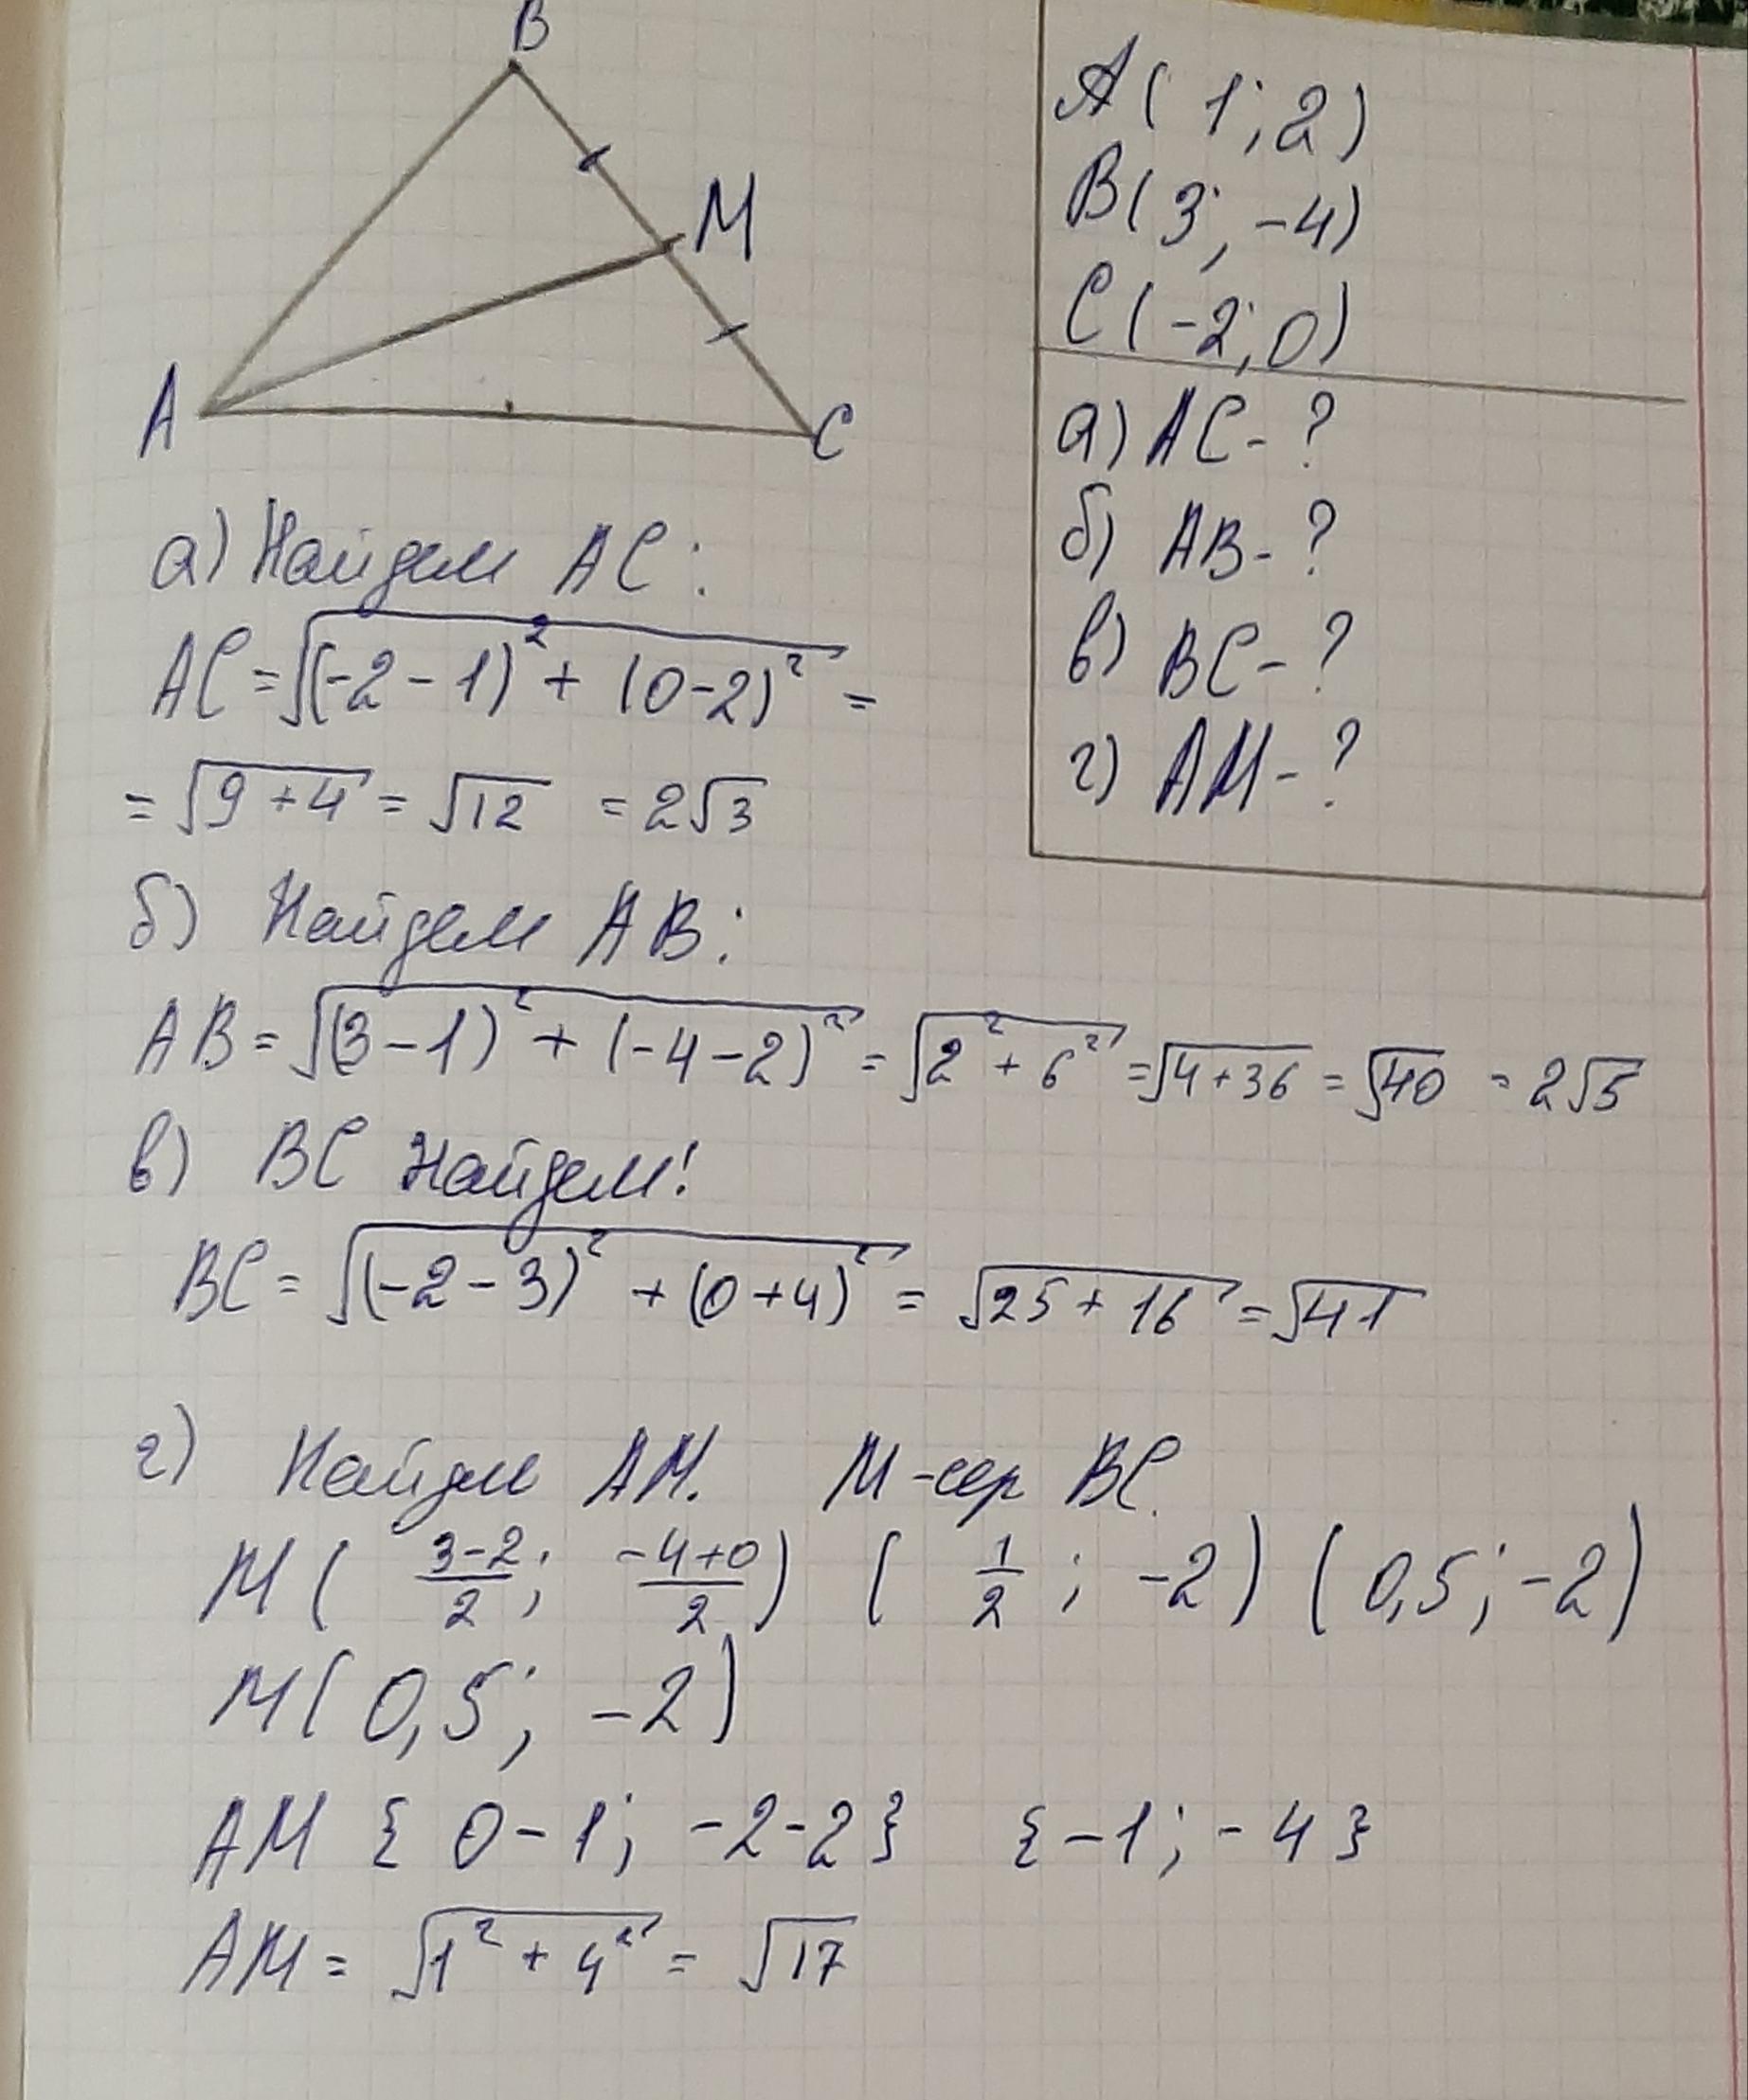 B
M
A
C
A( 1; 2)
B( 3; -4)
C( -2; 0)
а) AC - ?
б) AB - ?
в) BC - ?
г) AM - ?
а) Найдем AC:
AC = √((-2-1)² + (0-2)²) =
= √(9+4) = √12 = 2√3
б) Найдем AB:
AB = √((3-1)² + (-4-2)²) = √(2² + 6²) = √(4+36) = √40 = 2√5
в) BC Найдем!
BC = √((-2-3)² + (0+4)²) = √(25+16) = √41
г) Найдем AM. M-сер BC.
M( (3-2)/2; (-4+0)/2 ) ( 1/2; -2) ( 0,5; -2)
M( 0,5; -2)
AM { 0-1; -2-2} {-1; -4}
AM = √(1² + 4²) = √17